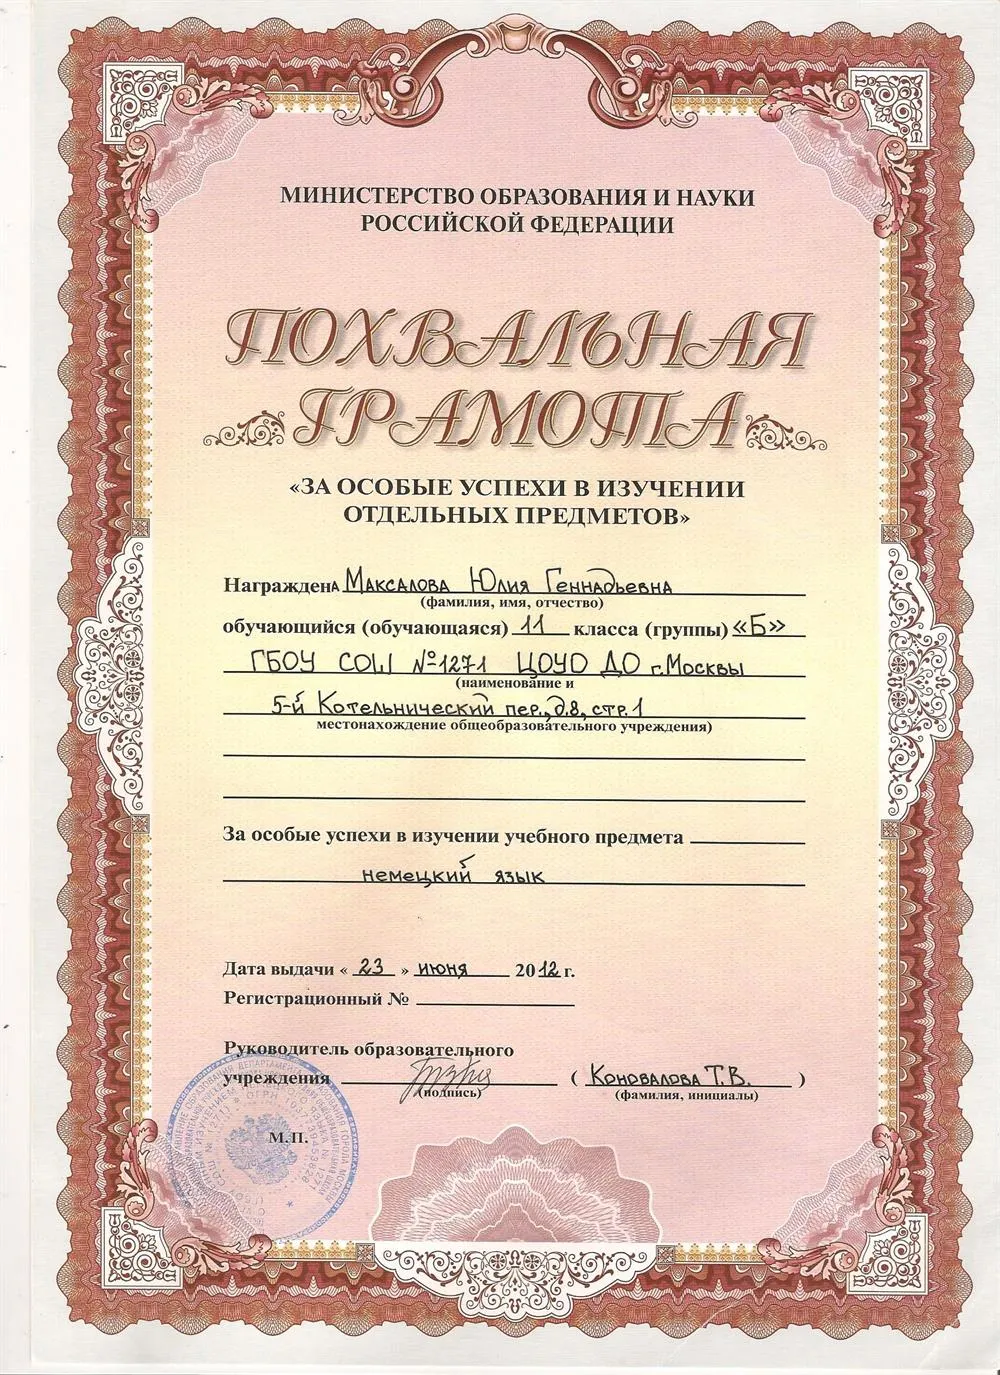 МИНИСТЕРСТВО ОБРАЗОВАНИЯ И НАУКИ
РОССИЙСКОЙ ФЕДЕРАЦИИ
ПОХВАЛЬНАЯ
ГРАМОТА
«ЗА ОСОБЫЕ УСПЕХИ В ИЗУЧЕНИИ
ОТДЕЛЬНЫХ ПРЕДМЕТОВ»
Награждена Максалова Юлия Геннадьевна
(фамилия, имя, отчество)
обучающийся (обучающаяся) 11 класса (группы) «Б»
ГБОУ СОШ №1271 ЦОУО ДО г.Москвы
(наименование и
5-й Котельнический пер., д.8, стр.1
местонахождение общеобразовательного учреждения)
За особые успехи в изучении учебного предмета
немецкий язык
Дата выдачи «23» июня 2012 г.
Регистрационный №
Руководитель образовательного
учреждения (Коновалова Т.В.)
(подпись) (фамилия, инициалы)
М.П.